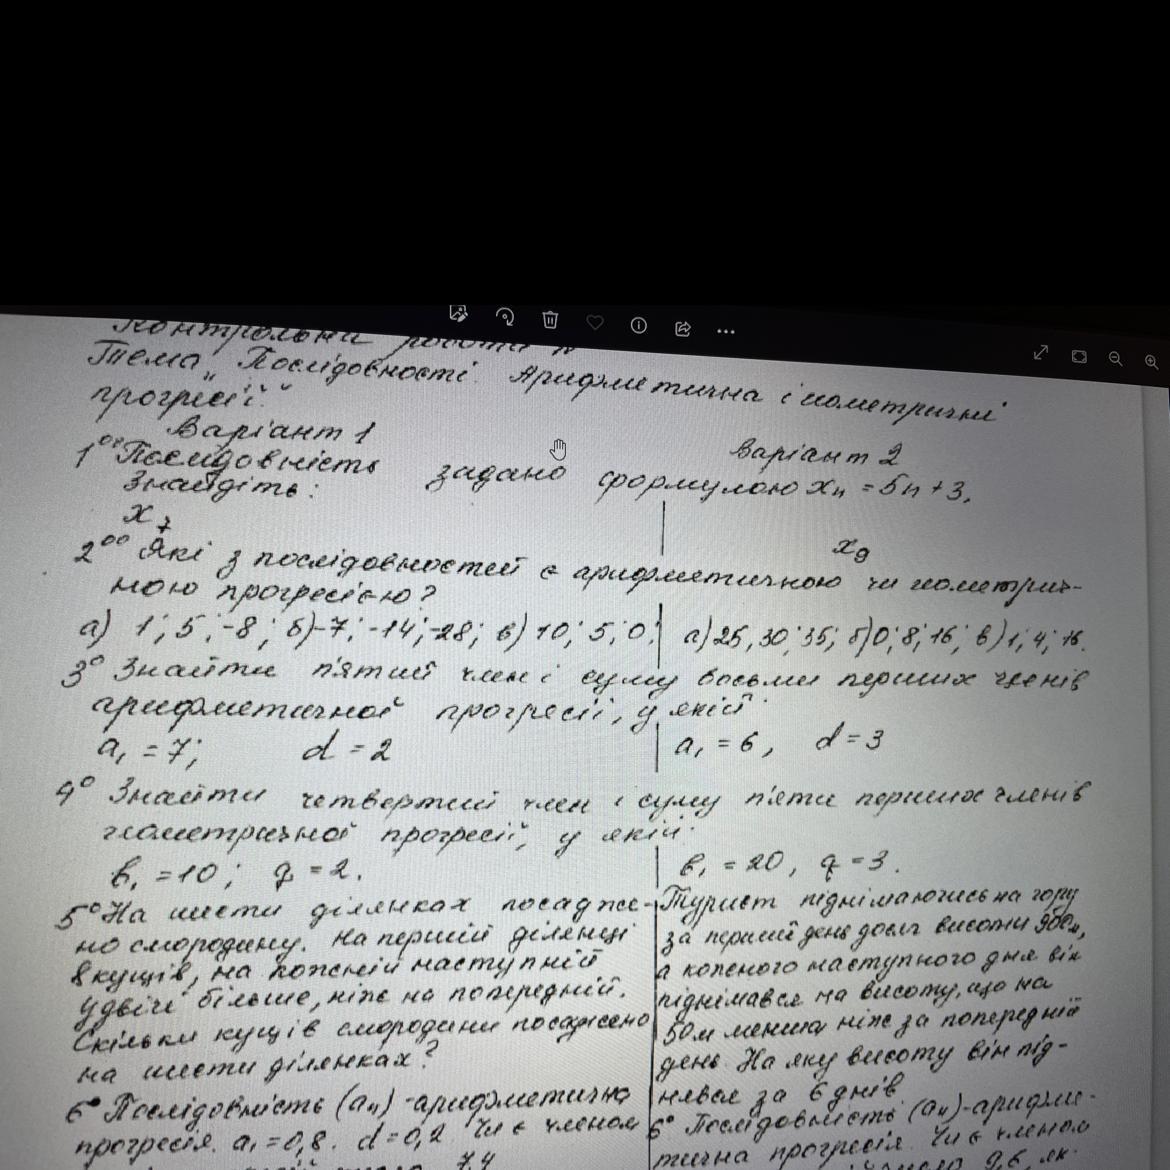 Контрольна робота
Тема „Послідовності. Арифметична і геометричні
прогресії."
Варіант 1
Варіант 2
1°° Послідовність задано формулою xₙ = 5n + 3.
Знайдіть:
x₇
x₉
2°° Які з послідовностей є арифметичною чи геометрич-
ною прогресією?
а) 1; 5; -8; б) -7; -14; -28; в) 10; 5; 0;
а) 25, 30; 35; б) 0; 8; 16; в) 1; 4; 16.
3° Знайти п'ятий член і суму восьми перших членів
арифметичної прогресії, у якій:
a₁ = 7; d = 2
a₁ = 6, d = 3
4° Знайти четвертий член і суму п'яти перших членів
геометричної прогресії, у якій:
b₁ = 10; q = 2.
b₁ = 20, q = 3.
5° На шести ділянках посадже-
но смородину. На першій ділянці
8 кущів, на кожній наступній
удвічі більше, ніж на попередній.
Скільки кущів смородини посаджено
на шести ділянках?
Турист піднімаючись на гору
за перший день досяг висоти
а кожного наступного дня він
піднімався на висоту, що на
50м менша ніж за попередній
день. На яку висоту він під-
нявся за 6 днів.
6° Послідовність (aₙ) - арифметична
прогресія. a₁ = 0,8. d = 0,2 Чи є членом
7,4
6° Послідовність (aₙ) - арифме-
тична прогресія. Чи є членом
9,6, як-